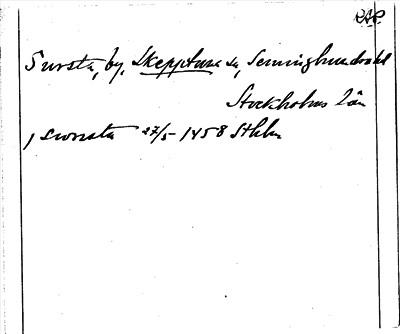 RAP.
Sursta, by, Skepptuna sn, Seminghundra hd
Stockholms län
, sworsta 27/5 1458 Sthlm